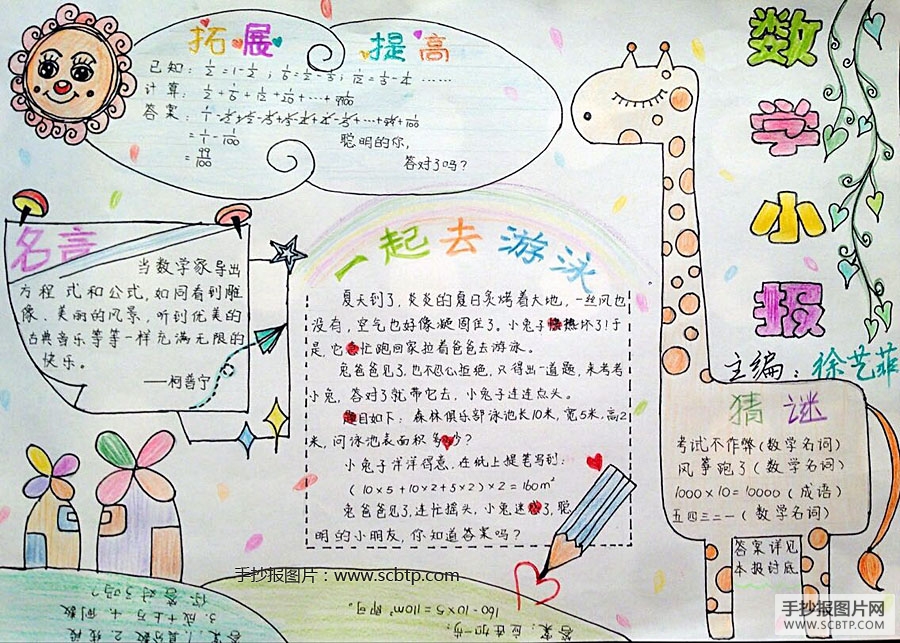 拓展 提高
已知: 1/2=1-1/2; 1/6=1/2-1/3; 1/12=1/3-1/4 ……
计算: 1/2+1/6+1/12+1/20+…+1/9900
= 1/1-1/100
= 99/100
聪明的你,
答对了吗?
数学小报
主编:徐艺菲
名言
当数学家导出
方程式和公式,如同看到雕
像、美丽的风景,听到优美的
古典音乐等等一样充满无限的
快乐。
——柯普宁
一起去游泳
夏天到了,炎炎的夏日炙烤着大地,一丝风也
没有,空气也好像凝固住了。小兔子快热坏了!于
是,它急忙跑回家拉着爸爸去游泳。
兔爸爸见了,也不忍心拒绝,只得出一道题,来考考
小兔,答对了就带它去,小兔子连连点头。
题目如下:森林俱乐部泳池长10米,宽5米,高2
米,问泳池表面积多少?
小兔子洋洋得意,在纸上提笔写到:
(10×5+10×2+5×2)×2=160m²
兔爸爸见了,连忙摇头,小兔迷惑了,聪
明的小朋友,你知道答案吗?
猜谜
考试不作弊(数学名词)
风筝跑了(数学名词)
1000×10=10000(成语)
五四三二一(数学名词)
答案详见
本报讨底
手抄报图片:www.scbtp.com
答案:1.真分数 2.线段
3.成千上万 4.倒数
你答对了吗?
答案:应该如一步:
160-10×5=110m²即可。
手抄报图片网
WWW.SCBTP.COM